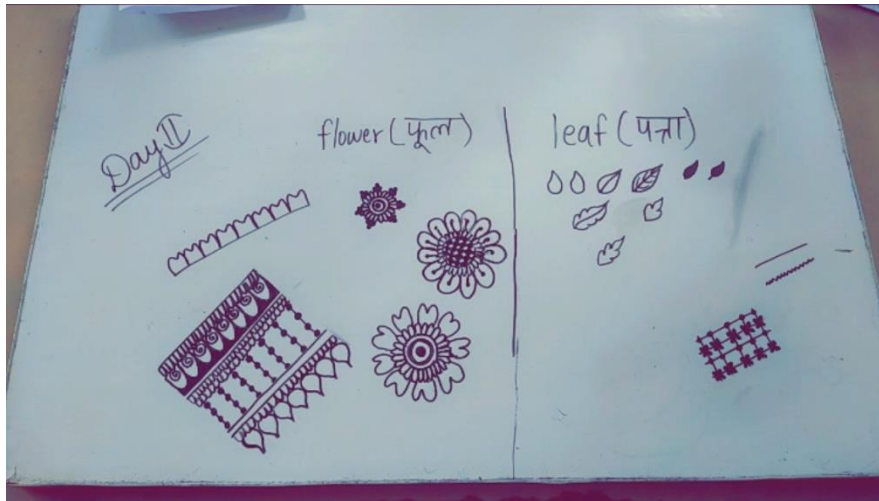 Day II
flower (फूल)
leaf (पत्ता)